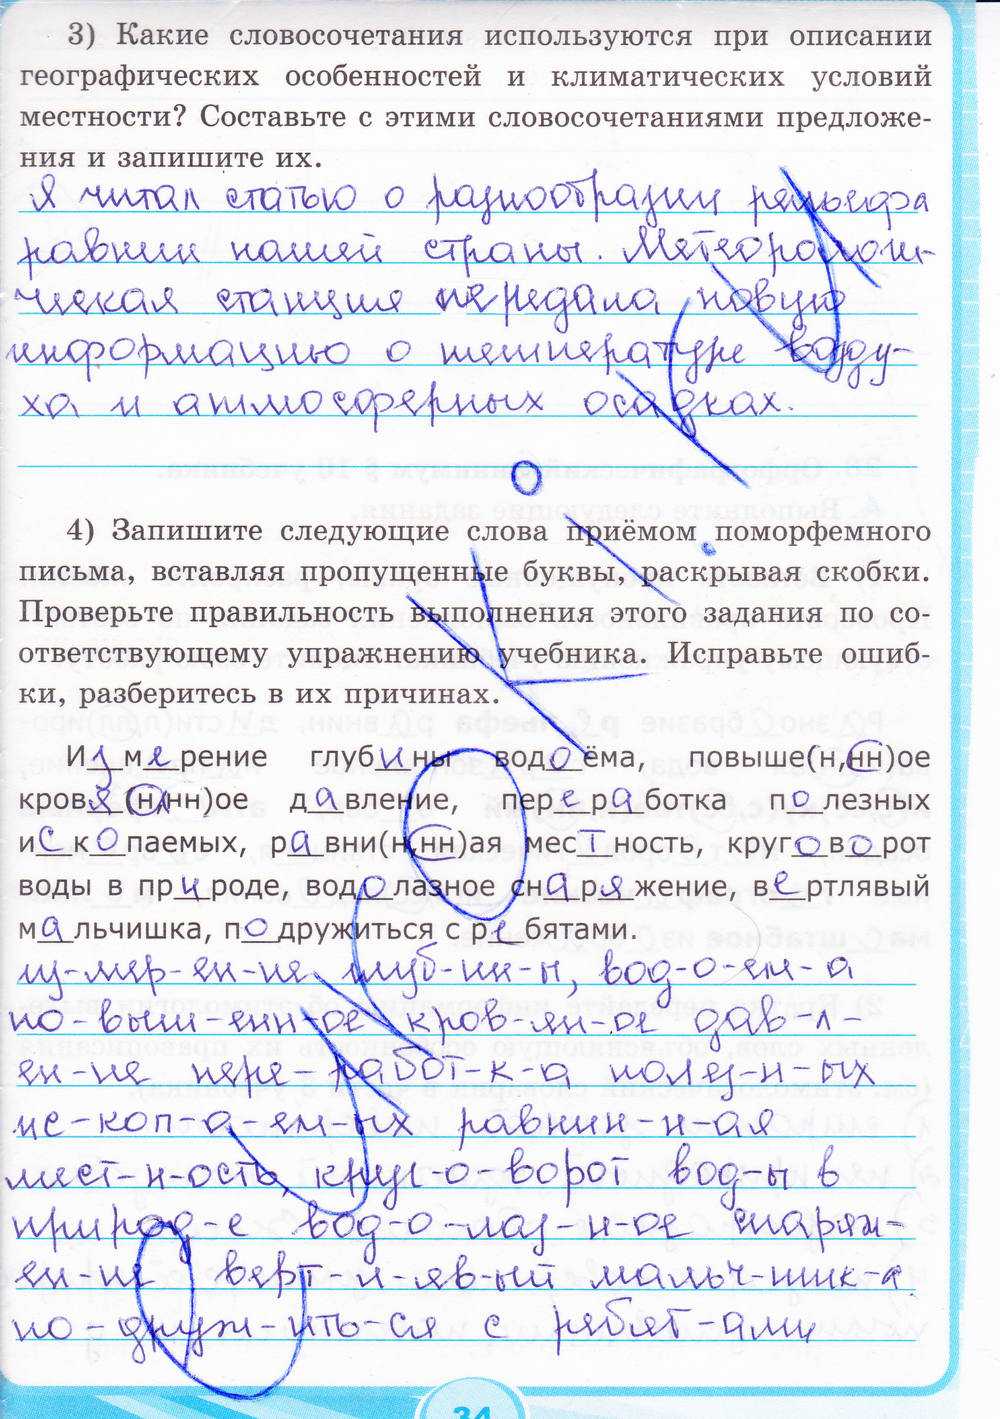 3) Какие словосочетания используются при описании
географических особенностей и климатических условий
местности? Составьте с этими словосочетаниями предложе-
ния и запишите их.
Я читал статью о разнообразии рельефа
равнин нашей страны. Метеорологи-
ческая станция передала новую
информацию о температуре возду-
ха и атмосферных осадках.
4) Запишите следующие слова приёмом поморфемного
письма, вставляя пропущенные буквы, раскрывая скобки.
Проверьте правильность выполнения этого задания по со-
ответствующему упражнению учебника. Исправьте ошиб-
ки, разберитесь в их причинах.
Измерение глубины водоёма, повыше(н,нн)ое
кровя(н,нн)ое давление, переработка полезных
ископаемых, равни(н,нн)ая местность, круговорот
воды в природе, водолазное снаряжение, вертлявый
мальчишка, подружиться с ребятами.
из-мер-ен-ие глуб-ин-ы, вод-о-ем-а
по-выш-енн-ое кров-ян-ое дав-л-
ен-ие пере-работ-к-а полез-н-ых
ис-коп-а ем-ых равнин-н-ая
мест-н-ость, круг-о-ворот вод-ы в
природ е вод-о-лаз-н-ое снаряж-
ен ие верт л-яв-ый мальч-ишк-а
по-друж-ить-ся с ребят-ами
34